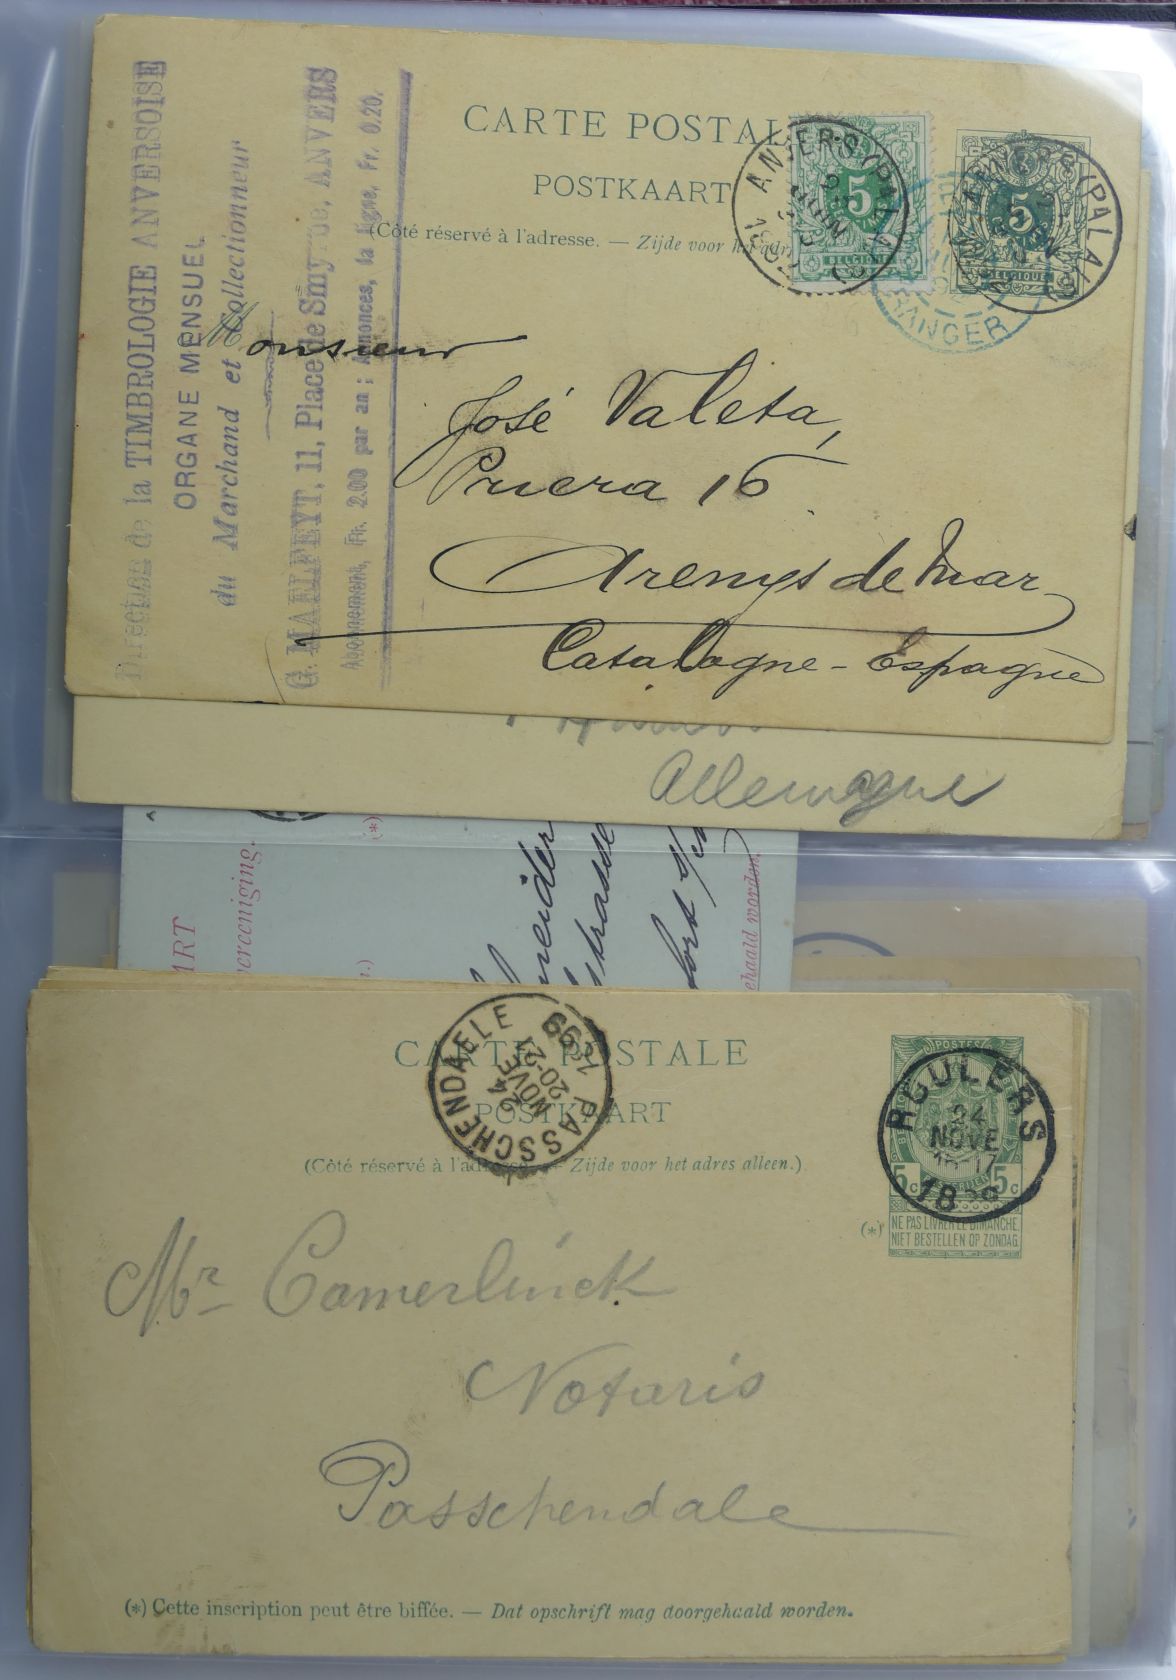 CARTE POSTALE
POSTKAART
(Côté réservé à l'adresse. — Zijde voor het adr
Direction de la TIMBROLOGIE ANVERSOISE
ORGANE MENSUEL
du Marchand et Collectionneur
G. MAELFEYT, 11, Place de Smyrne, ANVERS
Abonnement, Fr. 2.00 par an; Annonces, la ligne, Fr. 0.20.
5
BELGIQUE
ANVERS (PALAIS)
JUIN
5
BELGIQUE
ANVERS (PALAIS)
JUIN
ÉTRANGER
Monsieur
José Valeta,
Priera 16
Arenys de Mar
Catalogne - Espagne
Allemagne
ART
vereeniging.
(*)
strasse
ehaald worden.
CARTE POSTALE
POSTKAART
(Côté réservé à l'adresse. — Zijde voor het adres alleen.)
PASSCHENDAELE
24
NOVE
20-21
1899
POSTES
5c 5c
NE PAS LIVRER LE DIMANCHE.
NIET BESTELLEN OP ZONDAG.
(*)
ROULERS
24
NOVE
1899
Mr Camerlinck
Notaris
Passchendale
(*) Cette inscription peut être biffée. — Dat opschrift mag doorgehaald worden.